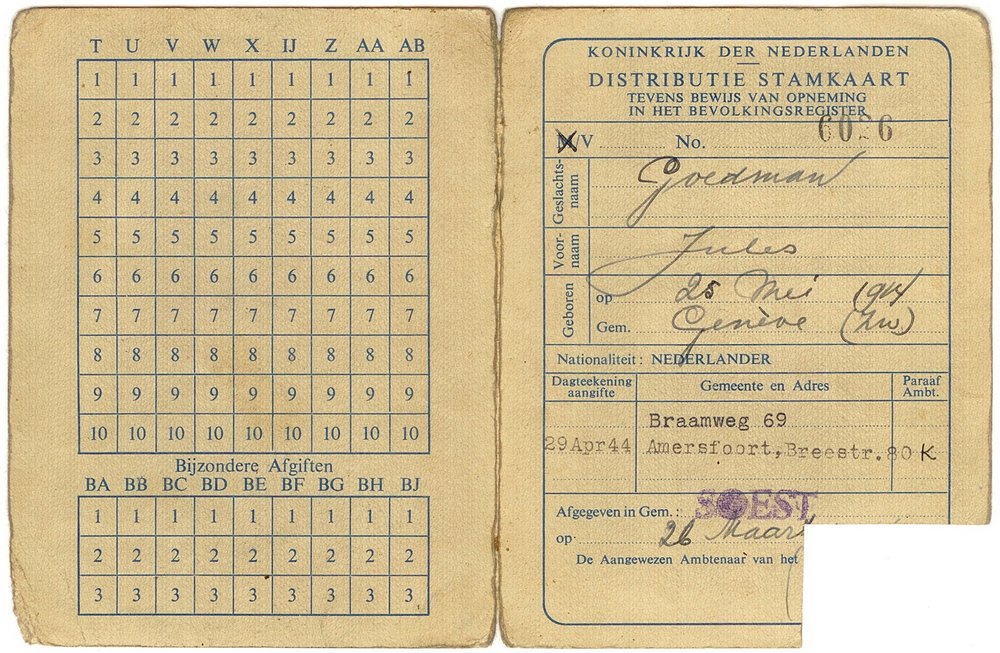 T U V W X IJ Z AA AB
1 1 1 1 1 1 1 1 1
2 2 2 2 2 2 2 2 2
3 3 3 3 3 3 3 3 3
4 4 4 4 4 4 4 4 4
5 5 5 5 5 5 5 5 5
6 6 6 6 6 6 6 6 6
7 7 7 7 7 7 7 7 7
8 8 8 8 8 8 8 8 8
9 9 9 9 9 9 9 9 9
10 10 10 10 10 10 10 10 10
Bijzondere Afgiften
BA BB BC BD BE BF BG BH BJ
1 1 1 1 1 1 1 1 1
2 2 2 2 2 2 2 2 2
3 3 3 3 3 3 3 3 3
KONINKRIJK DER NEDERLANDEN
DISTRIBUTIE STAMKAART
TEVENS BEWIJS VAN OPNEMING
IN HET BEVOLKINGSREGISTER
M/V No. 6026
Geslachts-
naam
Goedman
Voor-
naam
Jules
Geboren
op 25 Mei 1914
Gem. Genève (Zw)
Nationaliteit: NEDERLANDER
Dagteekening
aangifte
Gemeente en Adres
Paraaf
Ambt.
Braamweg 69
29 Apr 44 Amersfoort, Breestr. 80 K
Afgegeven in Gem.: SOEST
op 26 Maart
De Aangewezen Ambtenaar van het